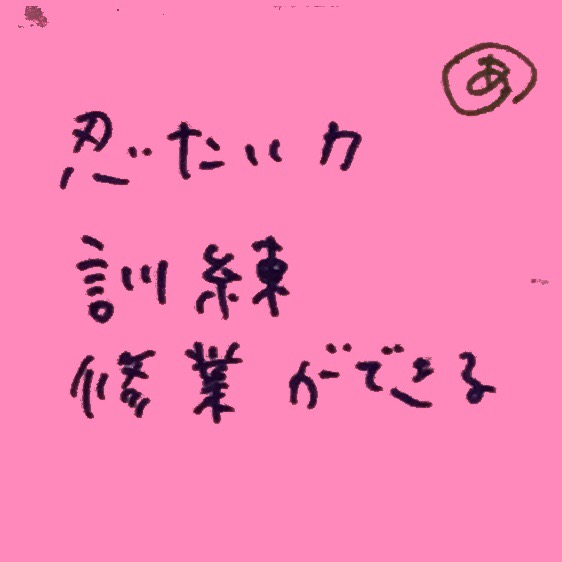 あ
忍たい力
訓練
修業ができる